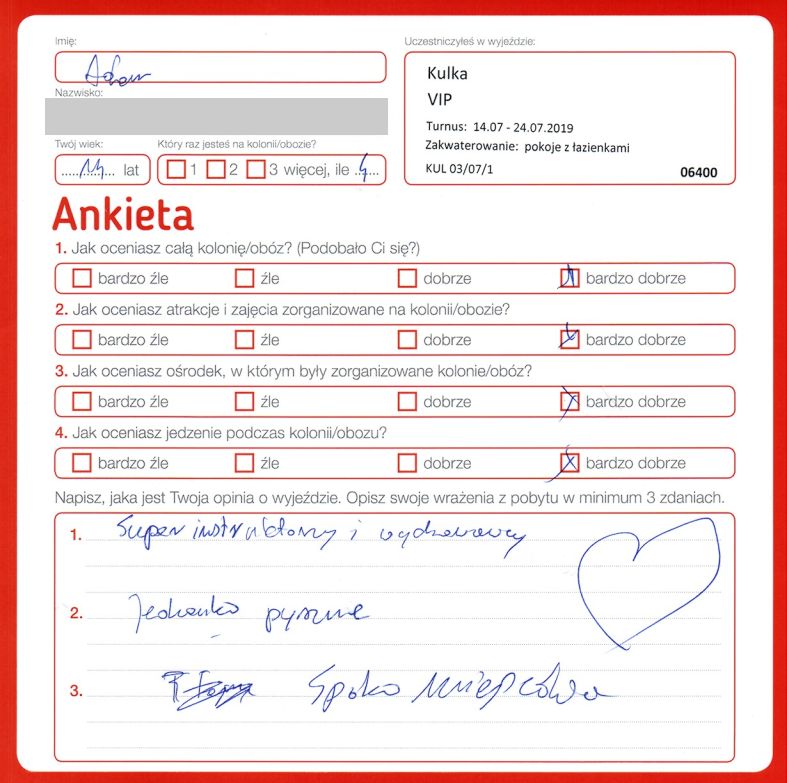 Imię:
Adam
Nazwisko:
Twój wiek:
14 lat
Który raz jesteś na kolonii/obozie?
1 2 3 więcej, ile 4
Uczestniczyłeś w wyjeździe:
Kulka
VIP
Turnus: 14.07 - 24.07.2019
Zakwaterowanie: pokoje z łazienkami
KUL 03/07/1 06400
Ankieta
1. Jak oceniasz całą kolonię/obóz? (Podobało Ci się?)
bardzo źle źle dobrze bardzo dobrze
2. Jak oceniasz atrakcje i zajęcia zorganizowane na kolonii/obozie?
bardzo źle źle dobrze bardzo dobrze
3. Jak oceniasz ośrodek, w którym były zorganizowane kolonie/obóz?
bardzo źle źle dobrze bardzo dobrze
4. Jak oceniasz jedzenie podczas kolonii/obozu?
bardzo źle źle dobrze bardzo dobrze
Napisz, jaka jest Twoja opinia o wyjeździe. Opisz swoje wrażenia z pobytu w minimum 3 zdaniach.
1. Super instruktorzy i wychowawcy
2. Jedzonko pyszne
3. Spoko miejscówa